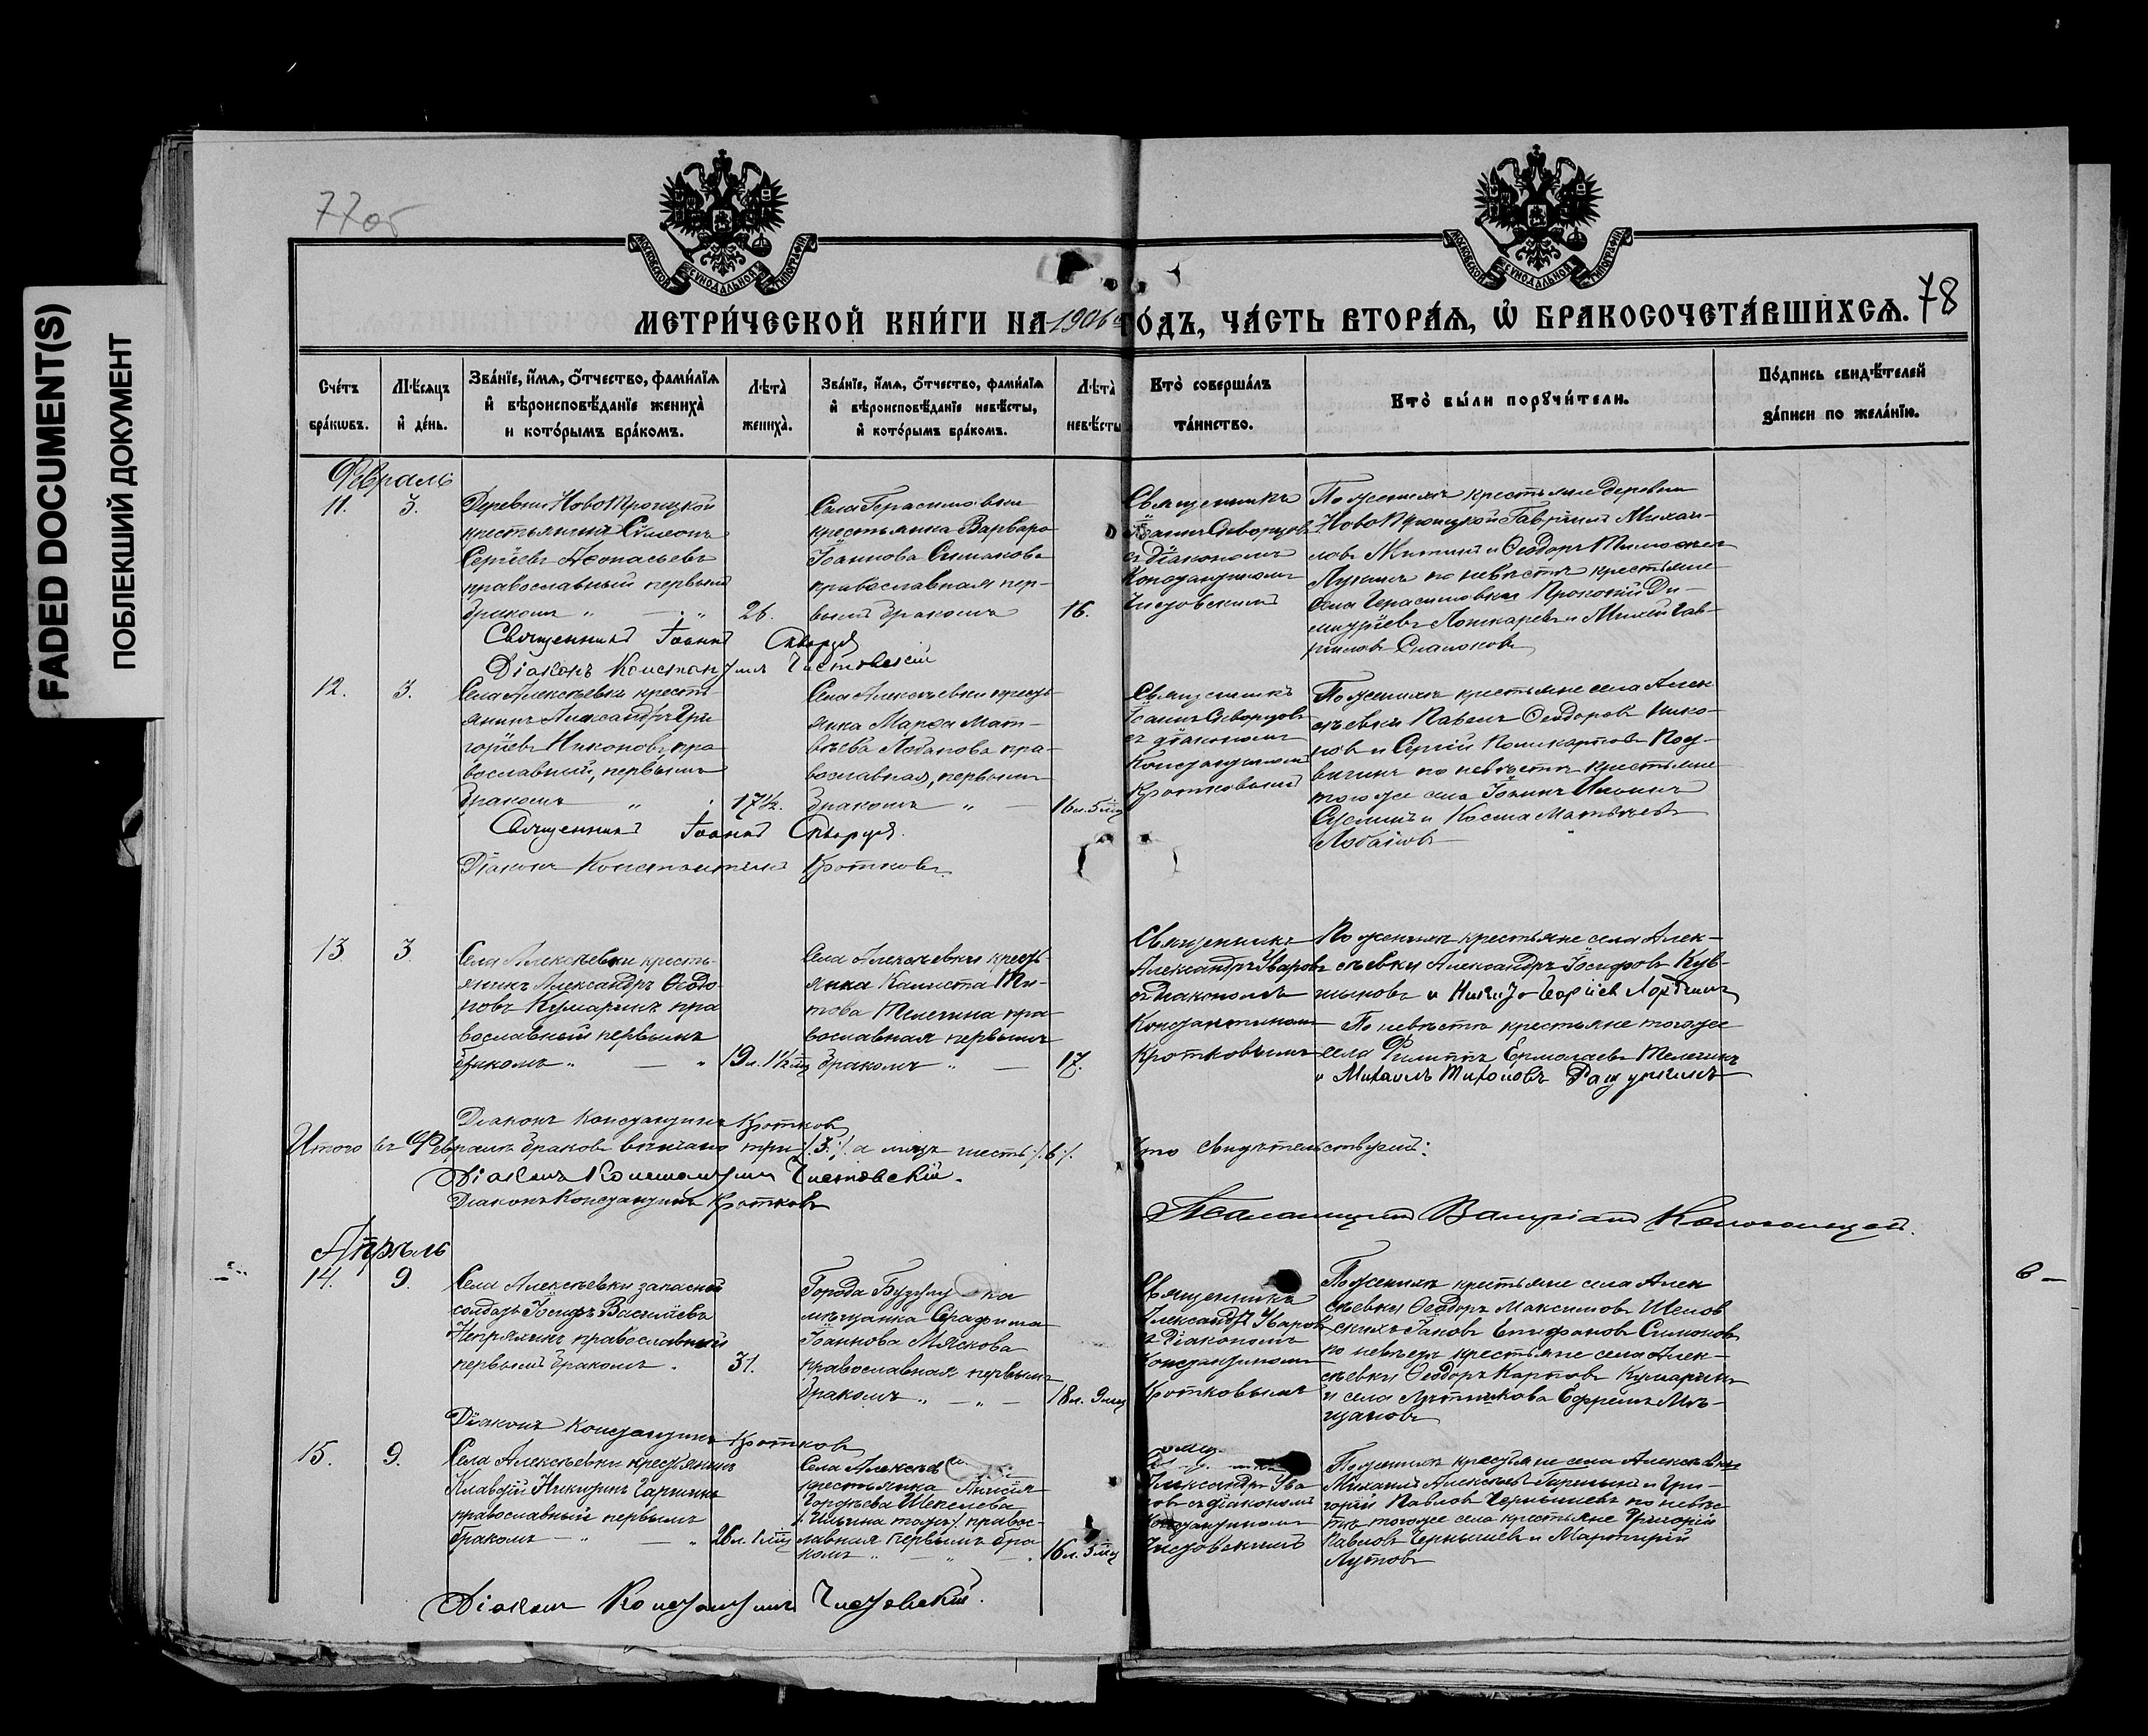 FADED DOCUMENT(S)
ПОБЛЕКШИЙ ДОКУМЕНТ
77об
78
МОСКОВСКОЙ СѴНОДАЛЬНОЙ ТИПОГРАФІИ
МОСКОВСКОЙ СѴНОДАЛЬНОЙ ТИПОГРАФІИ
МЕТРИ́ЧЕСКОЙ КНИ́ГИ НА 1906 ГО́ДЪ, ЧА́СТЬ ВТОРА́Я, Ѡ҆ БРАКОСОЧЕТА́ВШИХСЯ.
Сче́тъ бра́кѡвъ.
Мѣ́сяцъ и҆ де́нь.
Зва́нїе, и҆́мя, ѻ҆́тчество, фами́лїя и҆ вѣроисповѣ́данїе жениха̀ и кото́рымъ бра́комъ.
Лѣта̀ жениха̀.
Зва́нїе, и҆́мя, ѻ҆́тчество, фами́лїя и҆ вѣроисповѣ́данїе невѣ́сты, и҆ кото́рымъ бра́комъ.
Лѣта̀ невѣ́сты
Кто̀ соверша́лъ та́инство.
Кто̀ бы́ли порꙋчи́тели.
По́дпись свидѣ́телей за́писи по жела́нїю.
Февраль
11.
3.
Деревни Ново Троицкой
крестьянинъ Симеонъ
Сергіевъ Аѳонасьевъ
православный первымъ
бракомъ
26.
Села Герасимовки
крестьянка Варвара
Іоаннова Симакова
православная пер-
вымъ бракомъ
16.
Священникъ
Іоаннъ Скворцовъ
съ діакономъ
Константиномъ
Чистовскимъ
По женихѣ крестьяне деревни
Ново Троицкой Гавріилъ Михаи-
ловъ Митинъ и Ѳеодоръ
Лукинъ по невѣстѣ крестьяне
села Герасимовки Прокопій Ди-
митріевъ и Михей Гав-
рииловъ
Священникъ Іоаннъ Скворцовъ
Діаконъ Константинъ Чистовскій
12.
3.
Села Алексѣевки кресть-
янинъ Александръ Гри
горіевъ Никоновъ пра
вославный, первымъ
бракомъ
17½.
Села Алексѣевки кресть-
янка Марѳа Мат-
вѣева Лобанова пра-
вославная, первымъ
бракомъ
16 л. 5 мц
Священникъ
Іоаннъ Скворцовъ
съ діакономъ
Константиномъ
Кротковымъ
По женихѣ крестьяне села Алек
сѣевки Павелъ Ѳеодоровъ Нико-
новъ и Сергій Поликарповъ
по невѣстѣ крестьяне
того же села Іоаннъ Ильинъ
и Косма Матвѣевъ
Лобановъ
Священникъ Іоаннъ Скворцовъ.
Діаконъ Константинъ Кротковъ.
13
3
Села Алексѣевки кресть-
янинъ Александръ Ѳеодо-
ровъ Кумаринъ пра
вославный первымъ
бракомъ
19 л. 1½ мц
Села Алексѣевки кресть
янка Калиста Ти-
това Телегина пра-
вославная первымъ
бракомъ
17.
Священникъ
Александръ Уваровъ
съ діакономъ
Константиномъ
Кротковымъ
По женихѣ крестьяне села Алек-
сѣевки Александръ Іосифовъ
и
По невѣстѣ крестьяне того же
села Филиппъ Ермолаевъ Телегинъ
и Михаилъ Тихоновъ
Діаконъ Константинъ Кротковъ
Итого въ Февралѣ браковъ вѣнчано три /.3./. а лицъ шесть /.6./.
что свидѣтельствуемъ:
Діаконъ Константинъ Чистовскій.
Діаконъ Константинъ Кротковъ
Псаломщикъ
Апрѣль
14.
9.
Села Алексѣевки запасной
солдатъ Іосифъ Василіевъ
Непряхинъ православный
первымъ бракомъ.
31.
Города Бузулу ка
мѣщанка Серафима
Іоаннова Мяскова
православная первымъ
бракомъ
18 л. 9 мц
Священникъ
Александръ Уваровъ
съ діакономъ
Константиномъ
Кротковымъ
По женихѣ крестьяне села Алек
сѣевки Ѳеодоръ Максимовъ
Іаковъ Епифановъ Симоновъ
по невѣстѣ крестьяне села Алек-
сѣевки Ѳеодоръ Карповъ Кумаринъ
и села Ефремъ Мѣ-
щановъ
6 —
Діаконъ Константинъ Кротковъ
15.
9.
Села Алексѣевки крестьянинъ
Клавдій Никитинъ
православный первымъ
бракомъ
26 л. 1 мц
Села Алексѣев
крестьянка Анисія
Гордѣева Шепелева
/. Ильина тожъ /. правос-
лавная первымъ бра
комъ
16 л. 5 мц
Александръ Ува
ровъ съ діакономъ
Константиномъ
Чистовскимъ
По женихѣ крестьяне села Алексѣевки
Михаилъ Алексѣевъ и Гри-
горій Павловъ Чернышевъ по невѣс
тѣ того же села крестьяне Григорій
Павловъ Чернышевъ и Мартирій
Лутовъ
Діаконъ Константинъ Чистовскій.